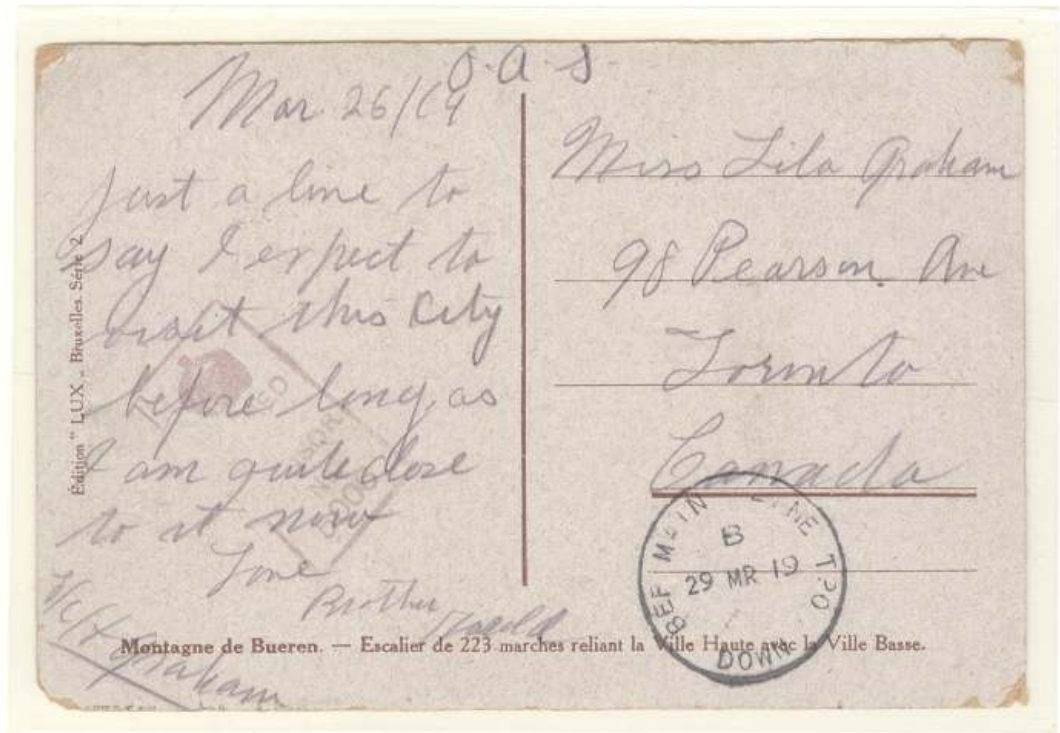 O.A.S.
Mar 26/19
Just a line to
say I expect to
visit this City
before long, as
I am quite close
to it now
Love
Brother
Harold
H Graham
Miss Lila Graham
98 Pearson Ave
Toronto
Canada
BEF MAIN LINE TPO
B
29 MR 19
DOWN
Édition "LUX_ Bruxelles. Série 2
Montagne de Bueren. — Escalier de 223 marches reliant la Ville Haute avec la Ville Basse.